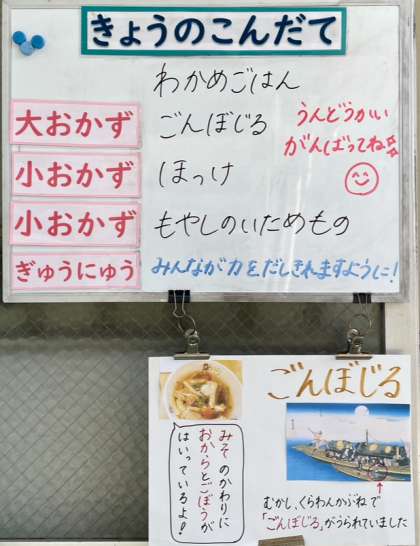 きょうのこんだて
わかめごはん
大おかず ごんぼじる
小おかず ほっけ
小おかず もやしのいためもの
ぎゅうにゅう みんなが力をだしきれますように!
うんどうかい
がんばってね
ごんぼじる
みそのかわりに
おからとごぼうが
はいっているよ!
むかし、くらわんかぶねで
「ごんぼじる」がうられていました